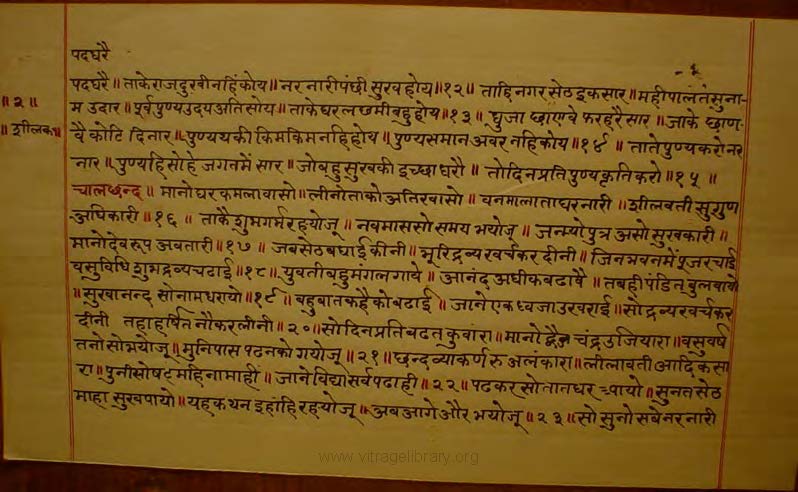 पदघरै
॥२॥
॥शीलक॥
पदघरै॥ ताकेराजदुखीनहिंकोय॥ नरनारीपंछी सुखहोय॥१२॥ ताहिनगरसेठइकसार॥ महीपालतसुना
म उदार॥ पूर्वपुण्यउदयअतिसोय॥ ताकेघरलछमीबहुहोय॥१३॥ धुजा छाणवे फरहरैसार॥ जाके छाण
वै कोटि दिनार॥ पुण्यथकी किमकिमनहिहोय॥ पुण्यसमान अवरनहिकोय॥१४॥ तातेपुण्यकरोनर
नार॥ पुण्यहिसोहे जगतमें सार॥ जोबहुसुखकी इच्छा धरौ॥ तोदिनप्रतिपुण्यकृतिकरो॥१५॥
चालछन्द॥ मानोघरकमलावासो॥ लीनोताको अतिखासो॥ वनमालाताघरनारी॥ शीलवतीसुगुण
अधिकारी॥१६॥ ताकैशुभगर्भरहयोजू॥ नवमाससो समय भयोजू॥ जन्म्योपुत्र असोसुखकारी॥
मानोदेवरूप अवतारी॥१७॥ जबसेठबधाईकीनी॥ भूरिद्रव्यखर्चकर दीनी॥ जिनभवनमेंपूजरचाई
वसुविधिशुभद्रव्यचढाई॥१८॥ युवतीबहुमंगलगावे॥ आनंद अधीकबढावै॥ तबहीपंडितबुलवायो
॥सुखानन्दसोनामधरायो॥१९॥ बहुबातकहैकोबढाई॥ जानेएकध्वजाउरखराई॥ सोद्रव्यखर्चकर
दीनी तहाहर्षितनौकरलीनी॥२०॥ सोदिनप्रतिबढतकुवांरा॥ मानो चंद्रउजियारा॥ वसुवर्ष
तनोसोभयोजू॥ मुनिपासपढनकोगयोजू॥२१॥ छन्दव्याकर्णरुअलंकारा॥ लीलावतीआदिकसा
रा॥ पुनीसोषट्महिनामाहीं॥ जानेविद्योसर्वपढाही॥२२॥ पढकरसोतानघर आयो॥ सुनतसेठ
माहासुखपायो॥ यहकथनइहांहिरहयोजू॥ अबआगेऔरभयोजू॥२३॥ सोसुनोसबेनरनारी
www.vitragelibrary.org